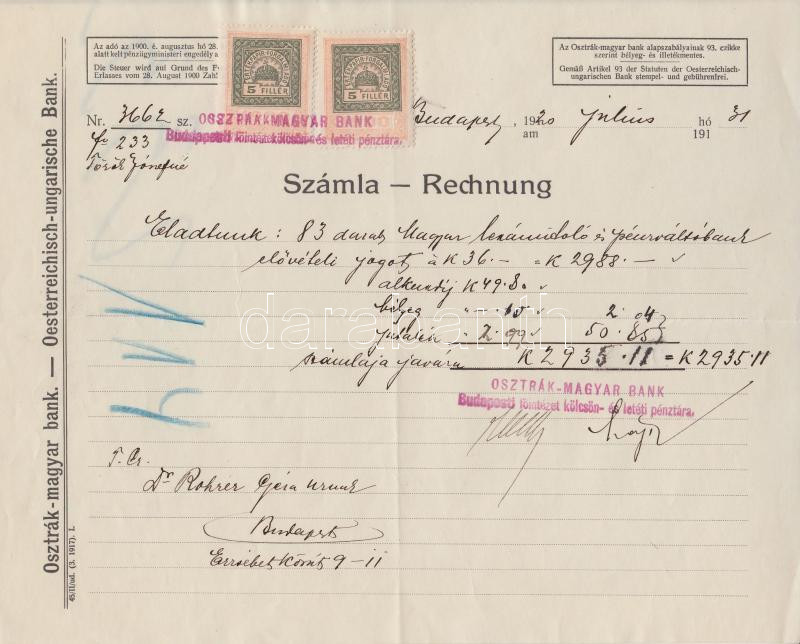 Az adó az 1900. é. augusztus hó 28.
alatt kelt pénzügyministeri engedély a
Die Steuer wird auf Grund des F
Erlasses vom 28. August 1900 Zahl
5 FILLÉR
5 FILLÉR
Az Osztrák-magyar bank alapszabályainak 93. czikke
szerint bélyeg- és illetékmentes.
Gemäß Artikel 93 der Statuten der Oesterreichisch-
ungarischen Bank stempel- und gebührenfrei.
Nr. 3662 sz.
OSZTRÁK-MAGYAR BANK
Budapesti főintézet kölcsön- és letéti pénztára.
Budapest, 1920 július hó 31
am 191
233
Török Józsefné
Számla — Rechnung
Eladtunk: 83 darab Magyar leszámitoló és pénzváltóbank
elővételi jogot à K 36.— = K 2988.—
alkudíj K 49.80
bélyeg " —.15 2.04
" 2.99 50.85
számlája javára K 2935.11 = K 2935.11
OSZTRÁK-MAGYAR BANK
Budapesti főintézet kölcsön- és letéti pénztára.
T. Cz.
Dr Rohrer Géza urnak
Budapest
Erzsébet Körút 9-11
Osztrák-magyar bank. — Oesterreichisch-ungarische Bank.
45/II/ud. (3. 1917). I.
darabanth